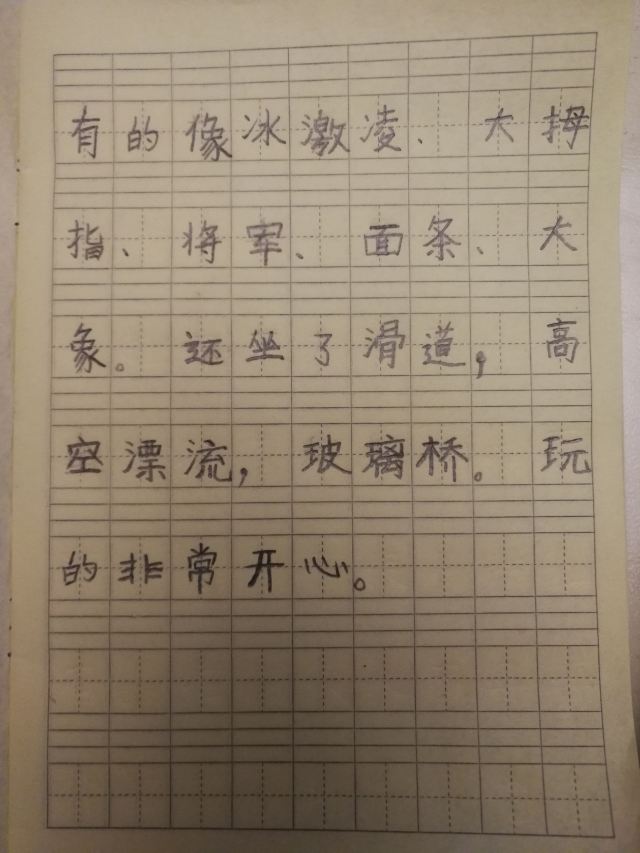 有的像冰激凌、大拇
指、将军、面条、大
象。还坐了滑道，高
空漂流，玻璃桥。玩
的非常开心。